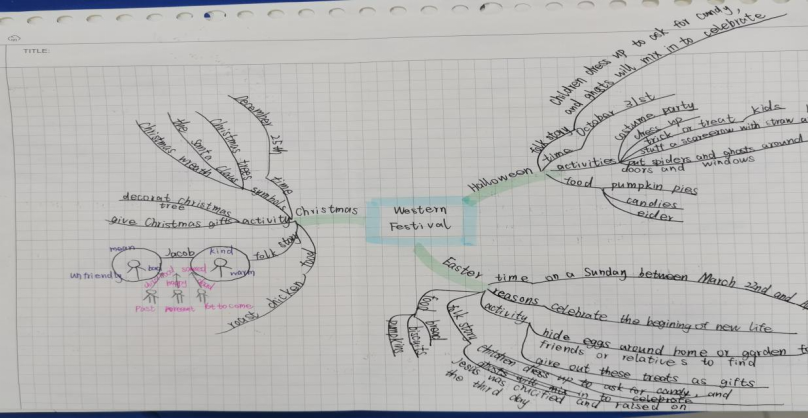 TITLE:
Western
Festival
Halloween
folk story
children dress up to ask for candy,
and ghosts will mix in to celebrate
time
October 31st
activities
costume party
dress up
trick or treat
kids
stuff a scarecrow with straw
put spiders and ghosts around
doors and windows
food
pumpkin pies
candies
eider
Easter
time
on a Sunday between March 22nd and
reasons
celebrate the begining of new life
activity
hide eggs around home or garden
friends or relatives to find
give out these treats as gifts
folk story
children dress up to ask for candy, and
ghosts will mix in to celebrate
Jesus was chicified and raised on
the third day
food
bread
biscuits
pumpkins
Christmas
time
December 25th
symbols
Christmas trees
the santa claus
christmas wreath
activity
decorat christmas
tree
give Christmas gift
folk story
Jacob
mean
unfriendly
bad
kind
warm
scared
past
yet to come
food
roast chicken